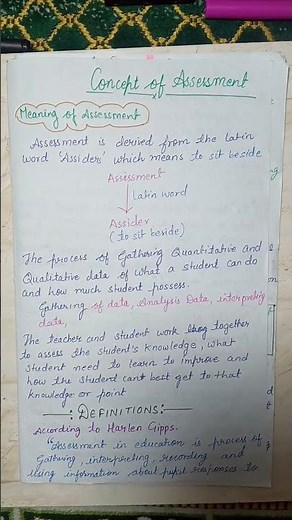 Concept of Assessment
Meaning of Assessment
Assessment is derived from the Latin
word 'Assider' which means to sit beside
Assessment
Latin word
Assider
(to sit beside)
The process of Gathering Quantitative and
Qualitative data of what a student can do
and how much student possess.
Gathering of data, Analysis Data, interpreting
data,
The teacher and student work together
to assess the student's knowledge, what
student need to learn to improve and
how the student can't best get to that
knowledge or point
: DEFINITIONS:
According to Harlen Gipps.
"Assessment in education is process of
Gathering, interpreting, recording and
using information about pupil responses to